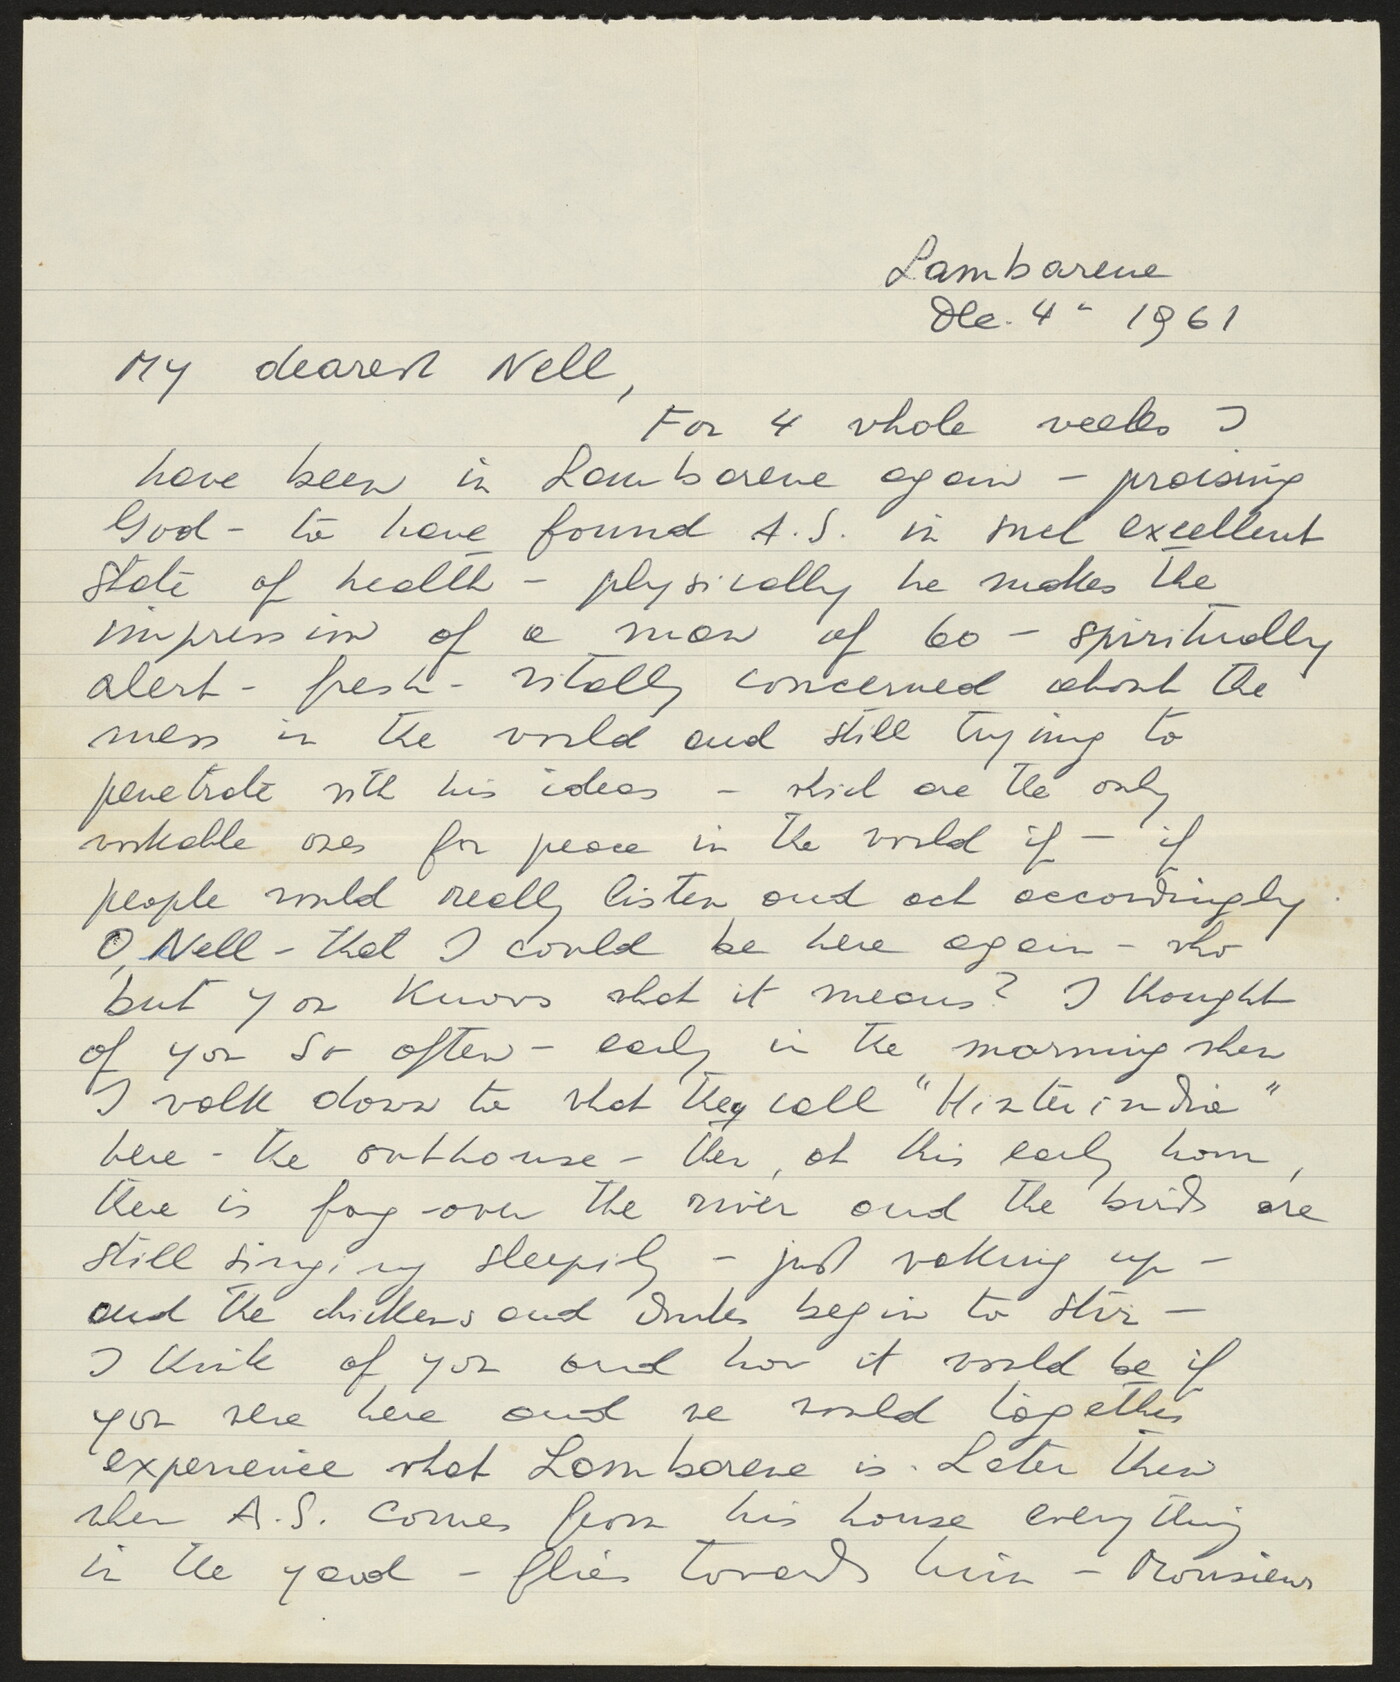 Lambarene
Dec. 4th 1961
My dearest Nell,
For 4 whole weeks I
have been in Lambarene again - praising
God - to have found A.S. in such excellent
state of health - physically he makes the
impression of a man of 60 - spiritually
alert - fresh - vitally concerned about the
mess in the world and still trying to
penetrate with his ideas - which are the only
workable ones for peace in the world if - if
people would really listen and act accordingly.
O, Nell - that I could be here again - who
but you knows what it means? I thought
of you so often - early in the morning when
I walk down to what they call "Hinterindia"
here - the outhouse - then, at this early hour,
there is fog over the river and the birds are
still singing sleepily - just waking up -
and the chickens and ducks begin to stir -
I think of you and how it would be if
you were here and we would together
experience what Lambarene is. Later then
when A.S. comes from his house everything
in the yard - flies towards him - Monsieur